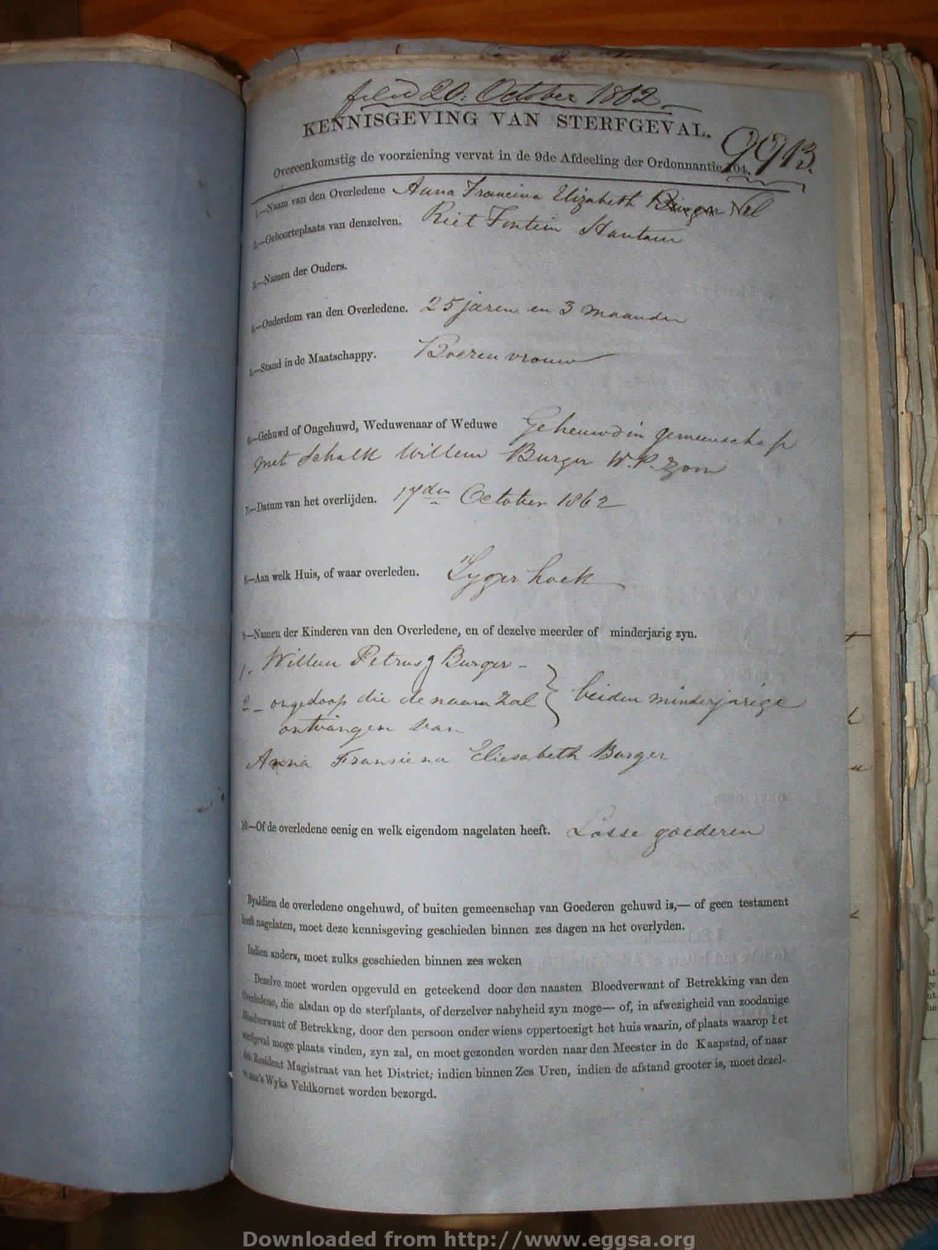 filed 20. October 1862
KENNISGEVING VAN STERFGEVAL.
9913.
Overeenkomstig de voorziening vervat in de 9de Afdeeling der Ordonnantie 104.
1.—Naam van den Overledene Anna Francina Elizabeth Burger Nel
2.—Geboorteplaats van denzelven. Riet Fontein Hantam
3.—Namen der Ouders.
4.—Ouderdom van den Overledene. 25 jaren en 3 maanden
5.—Stand in de Maatschappy. Boeren vrouw
6.—Gehuwd of Ongehuwd, Weduwenaar of Weduwe Geheuwd in gemeenschap
met Schalk Willem Burger W.P. Zoon
7.—Datum van het overlijden. 17den October 1862
8.—Aan welk Huis, of waar overleden. Tyger hoek
9.—Namen der Kinderen van den Overledene, en of dezelve meerder of minderjarig zyn.
1. Willem Petrus Burger
2 – ongedoop die de naam zal } beiden minderjarige
ontvangen van
Anna Fransiena Eliesabeth Burger
10.—Of de overledene eenig en welk eigendom nagelaten heeft. Losse goederen
Byaldien de overledene ongehuwd, of buiten gemeenschap van Goederen gehuwd is,— of geen testament
heeft nagelaten, moet deze kennisgeving geschieden binnen zes dagen na het overlyden.
Indien anders, moet zulks geschieden binnen zes weken
Dezelve moet worden opgevuld en geteekend door den naasten Bloedverwant of Betrekking van den
Overledene, die alsdan op de sterfplaats, of derzelver nabyheid zyn moge— of, in afwezigheid van zoodanige
Bloedverwant of Betrekkng, door den persoon onder wiens oppertoezigt het huis waarin, of plaats waarop het
sterfgeval moge plaats vinden, zyn zal, en moet gezonden worden naar den Meester in de Kaapstad, of naar
den Resident Magistraat van het District; indien binnen Zes Uren, indien de afstand grooter is, moet dezel-
ve aan's Wyks Veldkornet worden bezorgd.
Downloaded from http://www.eggsa.org